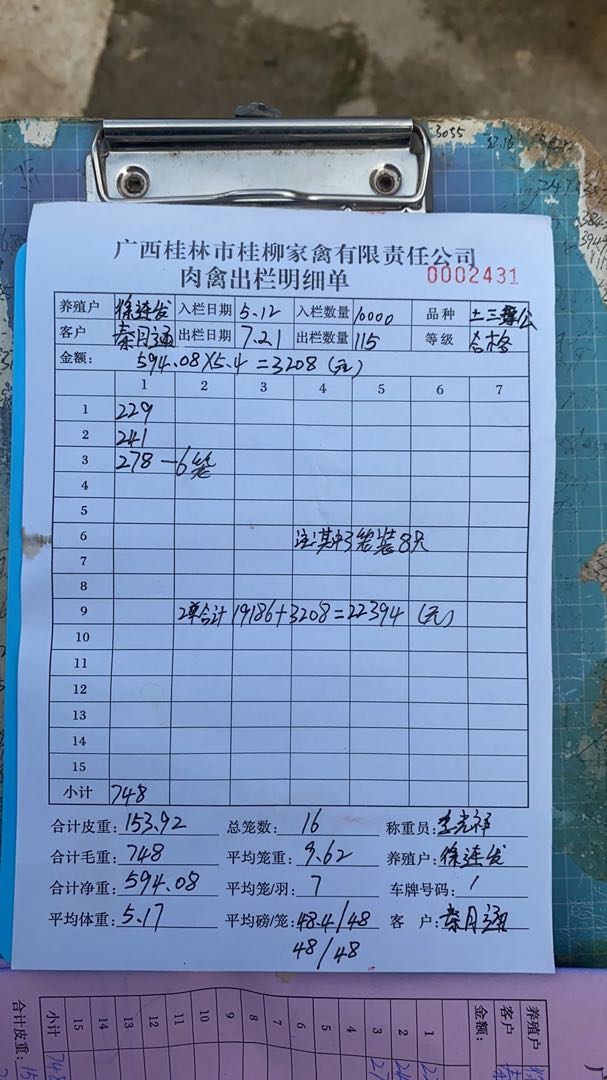 广西桂林市桂柳家禽有限责任公司
肉禽出栏明细单 0002431
养殖户 徐连发 入栏日期 5.12 入栏数量 10000 品种 土三
客户 秦月涵 出栏日期 7.21 出栏数量 115 等级 合格
金额: 594.08×5.4=3208(元)
1 2 3 4 5 6 7
1 229
2 241
3 278-6笼
4
5
6 注:其中3笼装8只
7
8
9 2单合计19186+3208=22394(元)
10
11
12
13
14
15
小计 748
合计皮重: 153.92 总笼数: 16 称重员: 光祥
合计毛重: 748 平均笼重: 9.62 养殖户: 徐连发
合计净重: 594.08 平均笼/羽: 7 车牌号码: /
平均体重: 5.17 平均磅/笼: 48.4/48 客 户: 秦月涵
48/48
3055
养殖户
客户
金额:
1
2
3
4
5
6
7
8
9
10
11
12
13
14
15
小计 748
合计皮重: